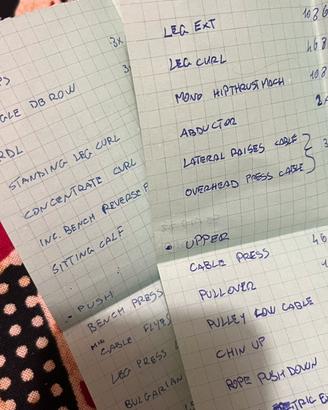 3x
GLE DB ROW
3
RDL
STANDING LEG CURL
CONCENTRATE CURL
INC. BENCH REVERSE F
SITTING CALF
• PUSH
BENCH PRESS
CABLE FLYES
LEG PRESS
BULGARIAN
LEG EXT
LEG CURL
MONO HIPTHRUST MACH
ABDUCTOR
LATERAL RAISES CABLE
OVERHEAD PRESS CABLE
3
• UPPER
CABLE PRESS
PULLOVER
PULLEY LOW CABLE
CHIN UP
ROPE PUSH DOWN